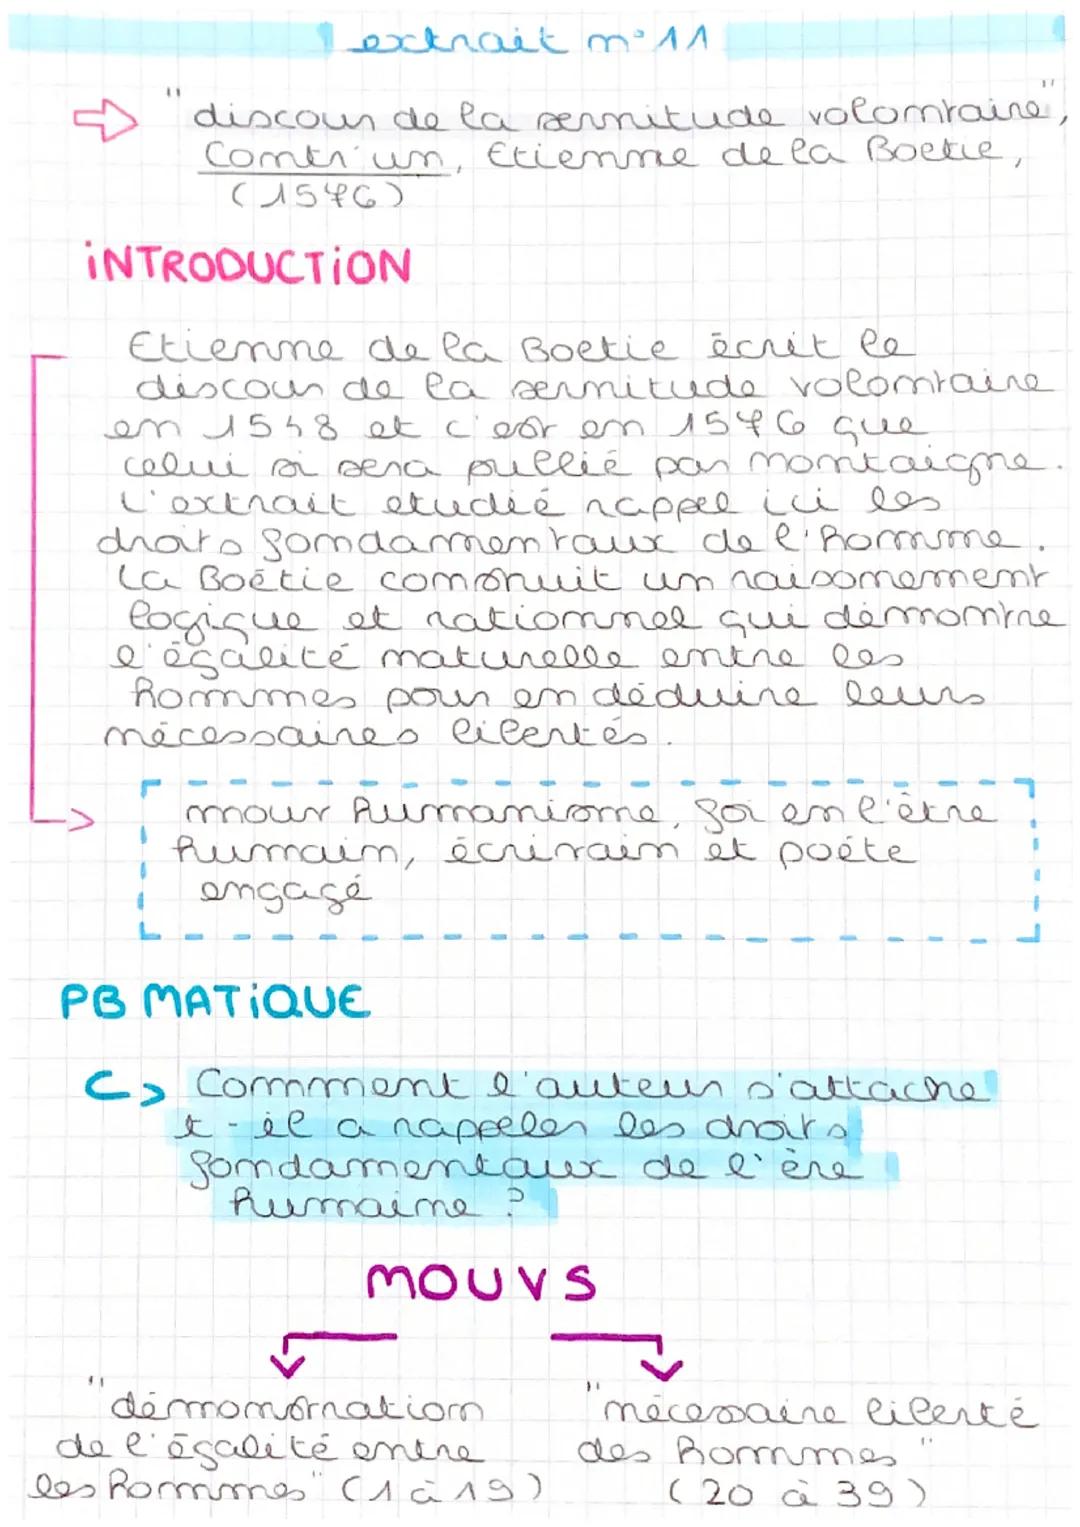 extrait n°11
"discour de la servitude volontaire",
Contr'un, Etienne de la Boetie,
(1576)
INTRODUCTION
Etienne de la Boetie écrit le
discour de la servitude volontaire
en 1548 et c'est en 1576 que
celui si sera pullié par montaigne.
L'extrait etudié rappel ici les
droits fondammentaux de l'homme.
La Boétie construit un raisonnement
logique et rationnel qui démontre
l'égalité naturelle entre les
hommes pour en déduire leurs
nécessaires libertés.
mouv humanisme, foi en l'être
humain, écrivain et poéte
engagé
PB MATIQUE
Comment l'auteur s'attache
t-il a rappeler les droits
fondamentaux de l'ère
humaine ?
MOUVS
"démonstration
de l'égalité entre
les hommes" (1 à 19)
"nécessaire liberté
des hommes"
(20 à 39)